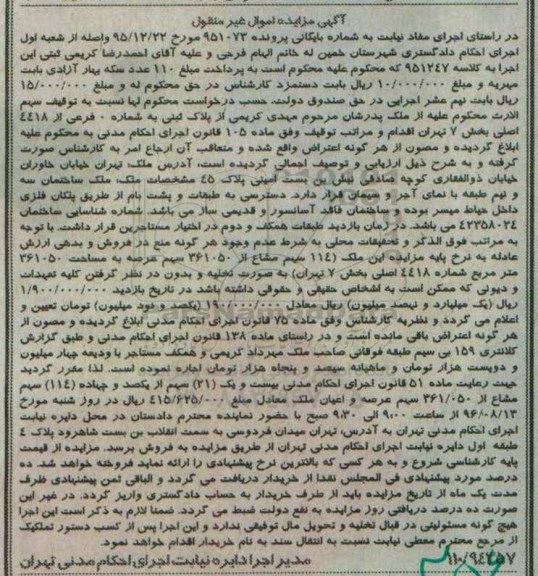 آگهی مزایده اموال غیر منقول
در راستای اجرای مفاد نیابت به شماره بایگانی پرونده ۹۵۱۰۷۳ مورخ ۹۵/۱۲/۲۲ واصله از شعبه اول
اجرای احکام دادگستری شهرستان خمین له خانم الهام فرجی و علیه آقای احمدرضا کریمی ثبتی این
اجرا به کلاسه ۹۵۱۲۴۷ که محکوم علیه محکوم است به پرداخت مبلغ ۱۱۰ عدد سکه بهار آزادی بابت
مهریه و مبلغ ۱۰/۰۰۰/۰۰۰ ریال بابت دستمزد کارشناس در حق محکوم له و مبلغ ۱۵/۰۰۰/۰۰۰
ریال بابت نیم عشر اجرایی در حق صندوق دولت، حسب درخواست محکوم لها نسبت به توقیف سهم
الارث محکوم علیه از ملک پدرشان مرحوم مهدی کریمی از پلاک ثبتی به شماره ۰ فرعی از ۴۴۱۸
اصلی بخش ۷ تهران اقدام و مراتب توقیف وفق ماده ۱۰۵ قانون اجرای احکام مدنی به محکوم علیه
ابلاغ گردیده و مصون از هر گونه اعتراض واقع شده و متعاقب آن ارجاع امر به کارشناس صورت
گرفته و به شرح ذیل ارزیابی و توصیف اجمالی گردیده است، آدرس ملک: تهران خیابان خاوران
خیابان ذوالفقاری کوچه صادقی نبش بن بست امینی پلاک ۴۵ مشخصات ملک: ملک ساختمان سه
و نیم طبقه با نمای آجر و سیمان قرار دارد. دسترسی به طبقات و پشت بام از طریق پلکان فلزی
داخل حیاط میسر بوده و ساختمان فاقد آسانسور و قدیمی ساز می باشد. شماره شناسایی ساختمان
۴۲۳۵۸۰۲۴ می باشد. در روز بازدید طبقات همکف و دوم در اختیار مستاجرین قرار داشت. با توجه
به مراتب فوق الذکر و تحقیقات محلی به شرط عدم وجود هر گونه منع در فروش و بدهی ارزش
عادله به نرخ پایه مزایده این ملک (۱۱۴ سهم مشاع از ۳۶۱۰۵۰ سهم عرصه به مساحت ۳۶۱۰۵۰
متر مربع شماره ۴۴۱۸ اصلی بخش ۷ تهران) به صورت تخلیه و بدون در نظر گرفتن کلیه تعهدات
و دیونی که ممکن است به اشخاص حقیقی و حقوقی داشته باشد در تاریخ بازدید ۱/۹۰۰/۰۰۰/۰۰۰
ریال (یک میلیارد و نهصد میلیون) ریال معادل ۱۹۰۰۰۰۰۰۰ (یکصد و نود میلیون) تومان تعیین و
اعلام می گردد و نظریه کارشناس وفق ماده ۷۵ قانون اجرای احکام مدنی ابلاغ گردیده و مصون از
هر گونه اعتراض باقی مانده است و در راستای ماده ۱۳۸ قانون اجرای احکام مدنی و طبق گزارش
کلانتری ۱۵۹ بی سیم طبقه فوقانی صاحب ملک مهرداد کریمی و همکف مستاجر با ودیعه چهار میلیون
و دویست هزار تومان و ماهیانه سیصد و پنجاه هزار تومان اجاره نموده است. لذا مقرر گردید
جهت رعایت ماده ۵۱ قانون اجرای احکام مدنی بیست و یک (۲۱) سهم از یکصد و چهارده (۱۱۴) سهم
مشاع از ۳۶۱/۰۵۰ سهم عرصه و اعیان ملک معادل مبلغ ۴۱۵/۶۲۵/۰۰۰ ریال در روز شنبه مورخ
۹۶/۰۸/۱۳ از ساعت ۹:۰۰ الی ۹:۳۰ صبح با حضور نماینده محترم دادستان در محل دایره نیابت
اجرای احکام مدنی تهران به آدرس، تهران میدان فردوسی به سمت انقلاب بن بست شاهرود پلاک ۴
طبقه اول دایره نیابت اجرای احکام مدنی تهران از طریق مزایده به فروش برسد. مزایده از قیمت
پایه کارشناسی شروع و به هر کسی که بالاترین نرخ پیشنهادی را ارائه نماید فروخته خواهد شد. ده
درصد مورد پیشنهادی فی المجلس نقدا از خریدار دریافت می گردد و الباقی ثمن پیشنهادی ظرف
مدت یک ماه از تاریخ مزایده باید از طرف خریدار به حساب دادگستری واریز گردد. در غیر این
صورت ده درصد دریافتی روز مزایده به نفع دولت ضبط می گردد. ضمنا لازم به ذکر است این اجرا
هیچ گونه مسئولیتی در قبال تخلیه و تحویل مال توقیفی ندارد و این اجرا پس از کسب دستور تملیک
از مرجع محترم معطی نیابت نسبت به انتقال سند به نام خریدار اقدام خواهد نمود.
۱۱۰/۹۴۴۵۷ مدیر اجرا دایره نیابت اجرای احکام مدنی تهران